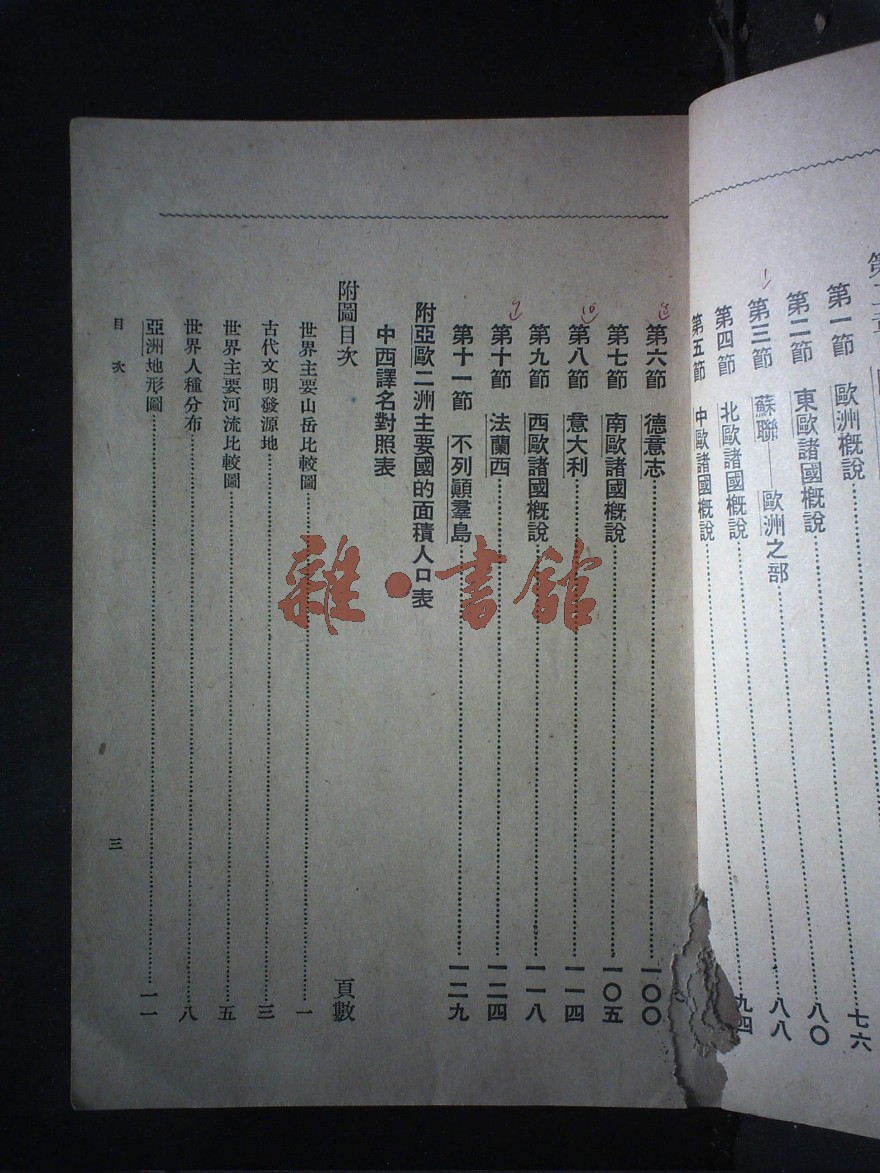 第一節 歐洲概說 七六
第二節 東歐諸國概說 八〇
第三節 蘇聯——歐洲之部 八八
第四節 北歐諸國概說 九四
第五節 中歐諸國概說
第六節 德意志 一〇〇
第七節 南歐諸國概說 一〇五
第八節 意大利 一一四
第九節 西歐諸國概說 一一八
第十節 法蘭西 一二四
第十一節 不列顛羣島 一二九
附亞歐二洲主要國的面積人口表
中西譯名對照表
附圖目次 頁數
世界主要山岳比較圖 一
古代文明發源地 三
世界主要河流比較圖 五
世界人種分布 八
亞洲地形圖 一一
目次 三
雜·書館